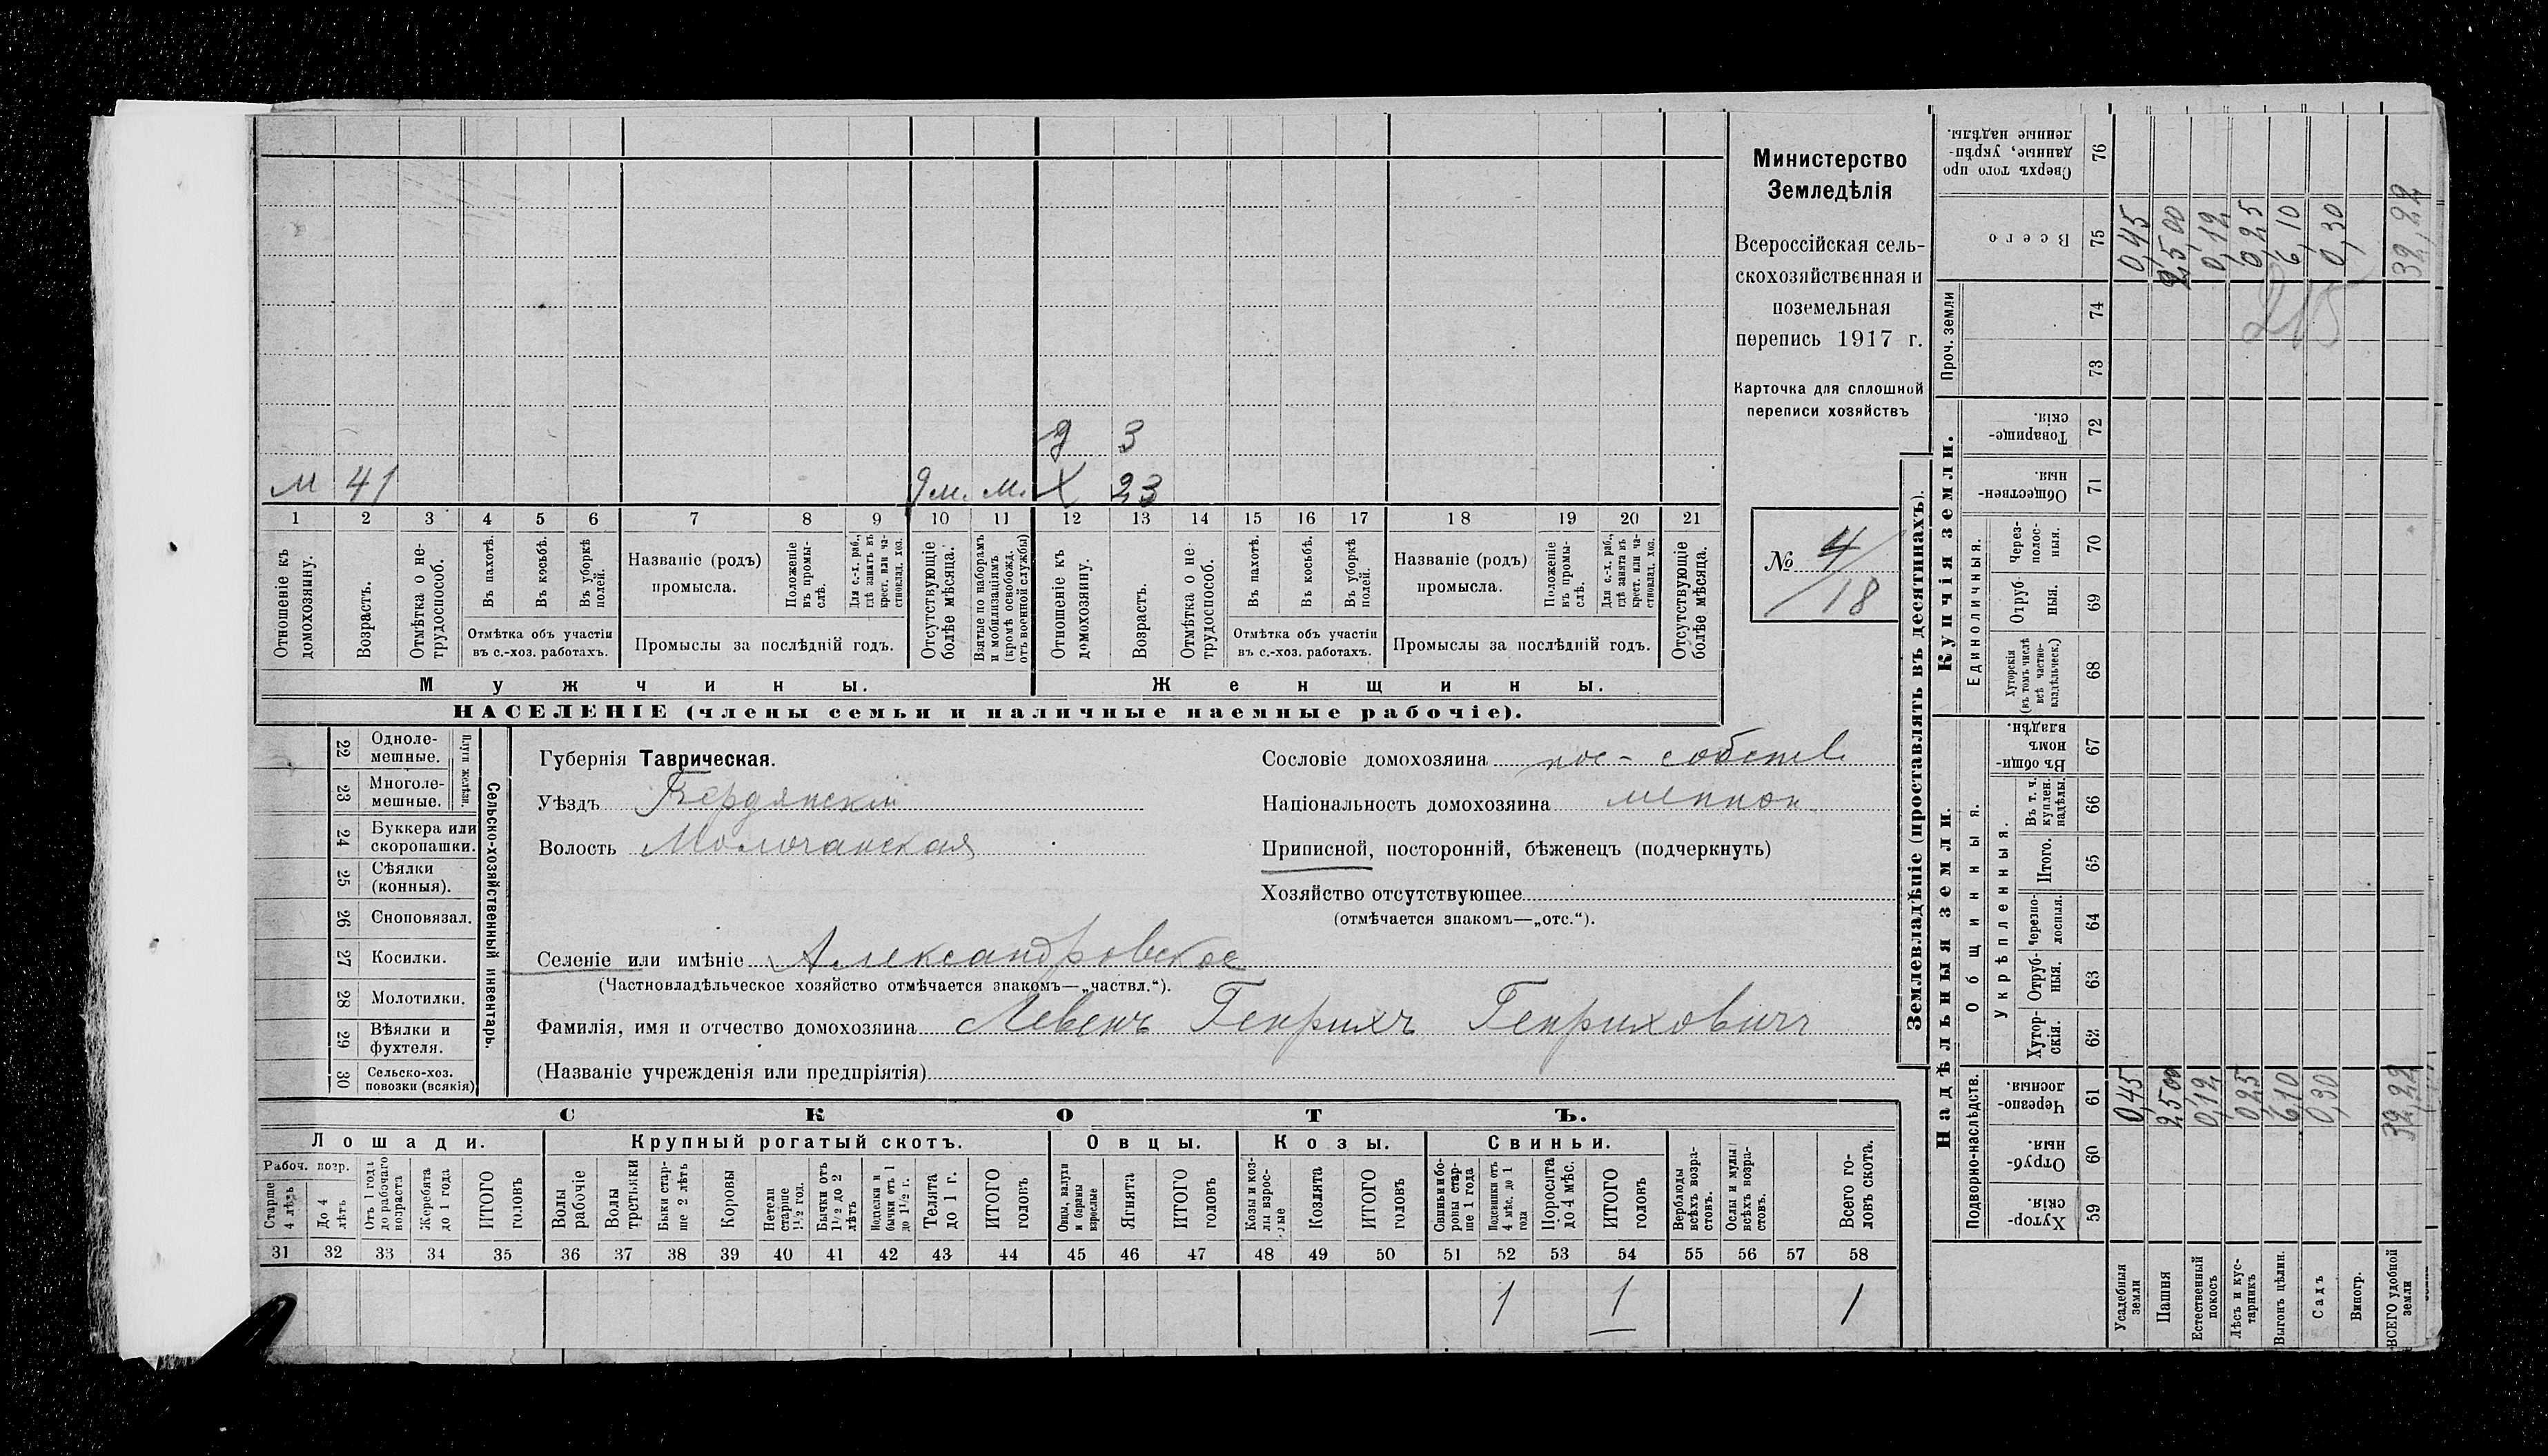 М 41 9 м. м. Х 23
д 3
1 2 3 4 5 6 7 8 9 10 11 12 13 14 15 16 17 18 19 20 21
Отношеніе къ домохозяину.
Возрастъ.
Отмѣтка о не-трудоспособ.
Въ пахотѣ.
Въ косьбѣ.
Въ уборкѣ полей.
Отмѣтка объ участіи
въ с.-хоз. работахъ.
Названіе (родъ)
промысла.
Положеніе въ промы-слѣ.
Для с.-х. раб., гдѣ занятъ въ крест. или ча-стновлад. хоз.
Промыслы за послѣдній годъ.
Отсутствующіе болѣе мѣсяца.
Взятые по наборамъ и мобилизаціямъ (кромѣ освобожд. отъ военной службы)
Отношеніе къ домохозяину.
Возрастъ.
Отмѣтка о не-трудоспособ.
Въ пахотѣ.
Въ косьбѣ.
Въ уборкѣ полей.
Отмѣтка объ участіи
въ с.-хоз. работахъ.
Названіе (родъ)
промысла.
Положеніе въ промы-слѣ.
Для с.-х. раб., гдѣ занята въ крест. или ча-стновлад. хоз.
Промыслы за послѣдній годъ.
Отсутствующіе болѣе мѣсяца.
Мужчины.
Женщины.
НАСЕЛЕНІЕ (члены семьи и наличные наемные рабочіе).
Министерство
Земледѣлія
Всероссійская сель-
скохозяйственная и
поземельная
перепись 1917 г.
Карточка для сплошной
переписи хозяйствъ
№ 4/18
22 Одноле-мешные.
23 Многоле-мешные.
Плуги желѣзн.
24 Буккера или скоропашки.
25 Сѣялки (конныя).
26 Сноповязал.
27 Косилки.
28 Молотилки.
29 Вѣялки и фухтеля.
30 Сельско-хоз. повозки (всякія)
Сельско-хозяйственный инвентарь.
Губернія Таврическая.
Уѣздъ Бердянскій
Волость Молочанская
Сословіе домохозяина пос-собств
Національность домохозяина меннон
Приписной, посторонній, бѣженецъ (подчеркнуть)
Хозяйство отсутствующее
(отмѣчается знакомъ—„отс.“).
Селеніе или имѣніе Александровское
(Частновладѣльческое хозяйство отмѣчается знакомъ—„частвл.“).
Фамилія, имя и отчество домохозяина Левенъ Генрихъ Генриховичъ
(Названіе учрежденія или предпріятія)
СКОТЪ.
Лошади. Крупный рогатый скотъ. Овцы. Козы. Свиньи.
Рабоч. возр.
Старше 4 лѣтъ
До 4 лѣтъ
Отъ 1 года до рабочаго возраста
Жеребята до 1 года
ИТОГО головъ
Волы рабочіе
Волы третьяки
Быки стар-ше 2 лѣтъ
Коровы
Нетели старше 1½ год.
Бычки отъ 1½ до 2 лѣтъ
Подтелки и бычки отъ 1 до 1½ г.
Телята до 1 г.
ИТОГО головъ
Овцы, валухи и бараны взрослые
Ягнята
ИТОГО головъ
Козы и коз-лы взрос-лые
Козлята
ИТОГО головъ
Свиньи и бо-ровы стар-ше 1 года
Подсвинки отъ 4 мѣс. до 1 года
Поросята до 4 мѣс.
ИТОГО головъ
Верблюды всѣхъ возра-стовъ.
Ослы и мулы всѣхъ возра-стовъ.
Всего го-ловъ скота.
31 32 33 34 35 36 37 38 39 40 41 42 43 44 45 46 47 48 49 50 51 52 53 54 55 56 57 58
1 1 1
Землевладѣніе (проставлять въ десятинахъ).
Надѣльныя земли.
Купчія земли.
Проч. земли
Подворно-наслѣдств.
Общинныя.
Укрѣпленныя.
Единоличныя.
Сверхъ того про данные, укрѣп-ленные надѣлы. 76
Всего 75
74
73
Товарище-скія. 72
Обществен-ныя. 71
Через-полос-ныя. 70
Отруб-ныя. 69
Хуторскія (въ томъ числѣ всѣ частно-владѣльческ.) 68
Въ общин-номъ владѣн. 67
Въ т. ч. куплен. надѣлы 66
Итого. 65
Черезпо-лосныя. 64
Отруб-ныя. 63
Хутор-скія. 62
Черезпо-лосныя. 61
Отруб-ныя. 60
Хутор-скія. 59
Усадебныя земли 0,45 0,45
Пашня 25,00 25,00
Естественный покосъ 0,12 0,12
Лѣсъ и кус-тарникъ 0,25 0,25
Выгонъ цѣлин. 6,10 6,10
Садъ 0,30 0,30
Виногр.
ВСЕГО удобной земли 32,22 32,22
215